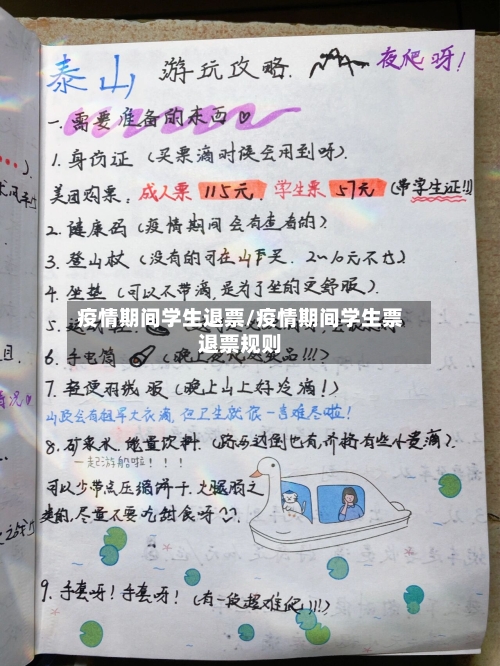 泰山 游玩攻略. 夜爬呀!
一.需要准备的东西
1.身份证(买票滴时候会用到呀).
美团购票: 成人票 115元. 学生票 57元 (带学生证!!)
2.健康码(疫情期间会有查者的)
3.登山杖(没有的可在山下买.
4.坐垫(可以不带滴,是为了坐的更舒服).
5.
疫情期间学生退票/疫情期间学生票
退票规则
6.手电筒 (晚上
7.轻便羽绒服(晚上山上好冷滴!)
山顶会有租军大衣滴,但卫生就很一言难尽啦!
8.矿泉水.能量饮料.(路边倒也有,价格有些小贵滴).
一起游船啦!!!
可以少带点压缩饼干.火腿肠之
类的,尽量不要吃甜食呀
9.手套呀!手套呀!(有一段超难爬!!!)